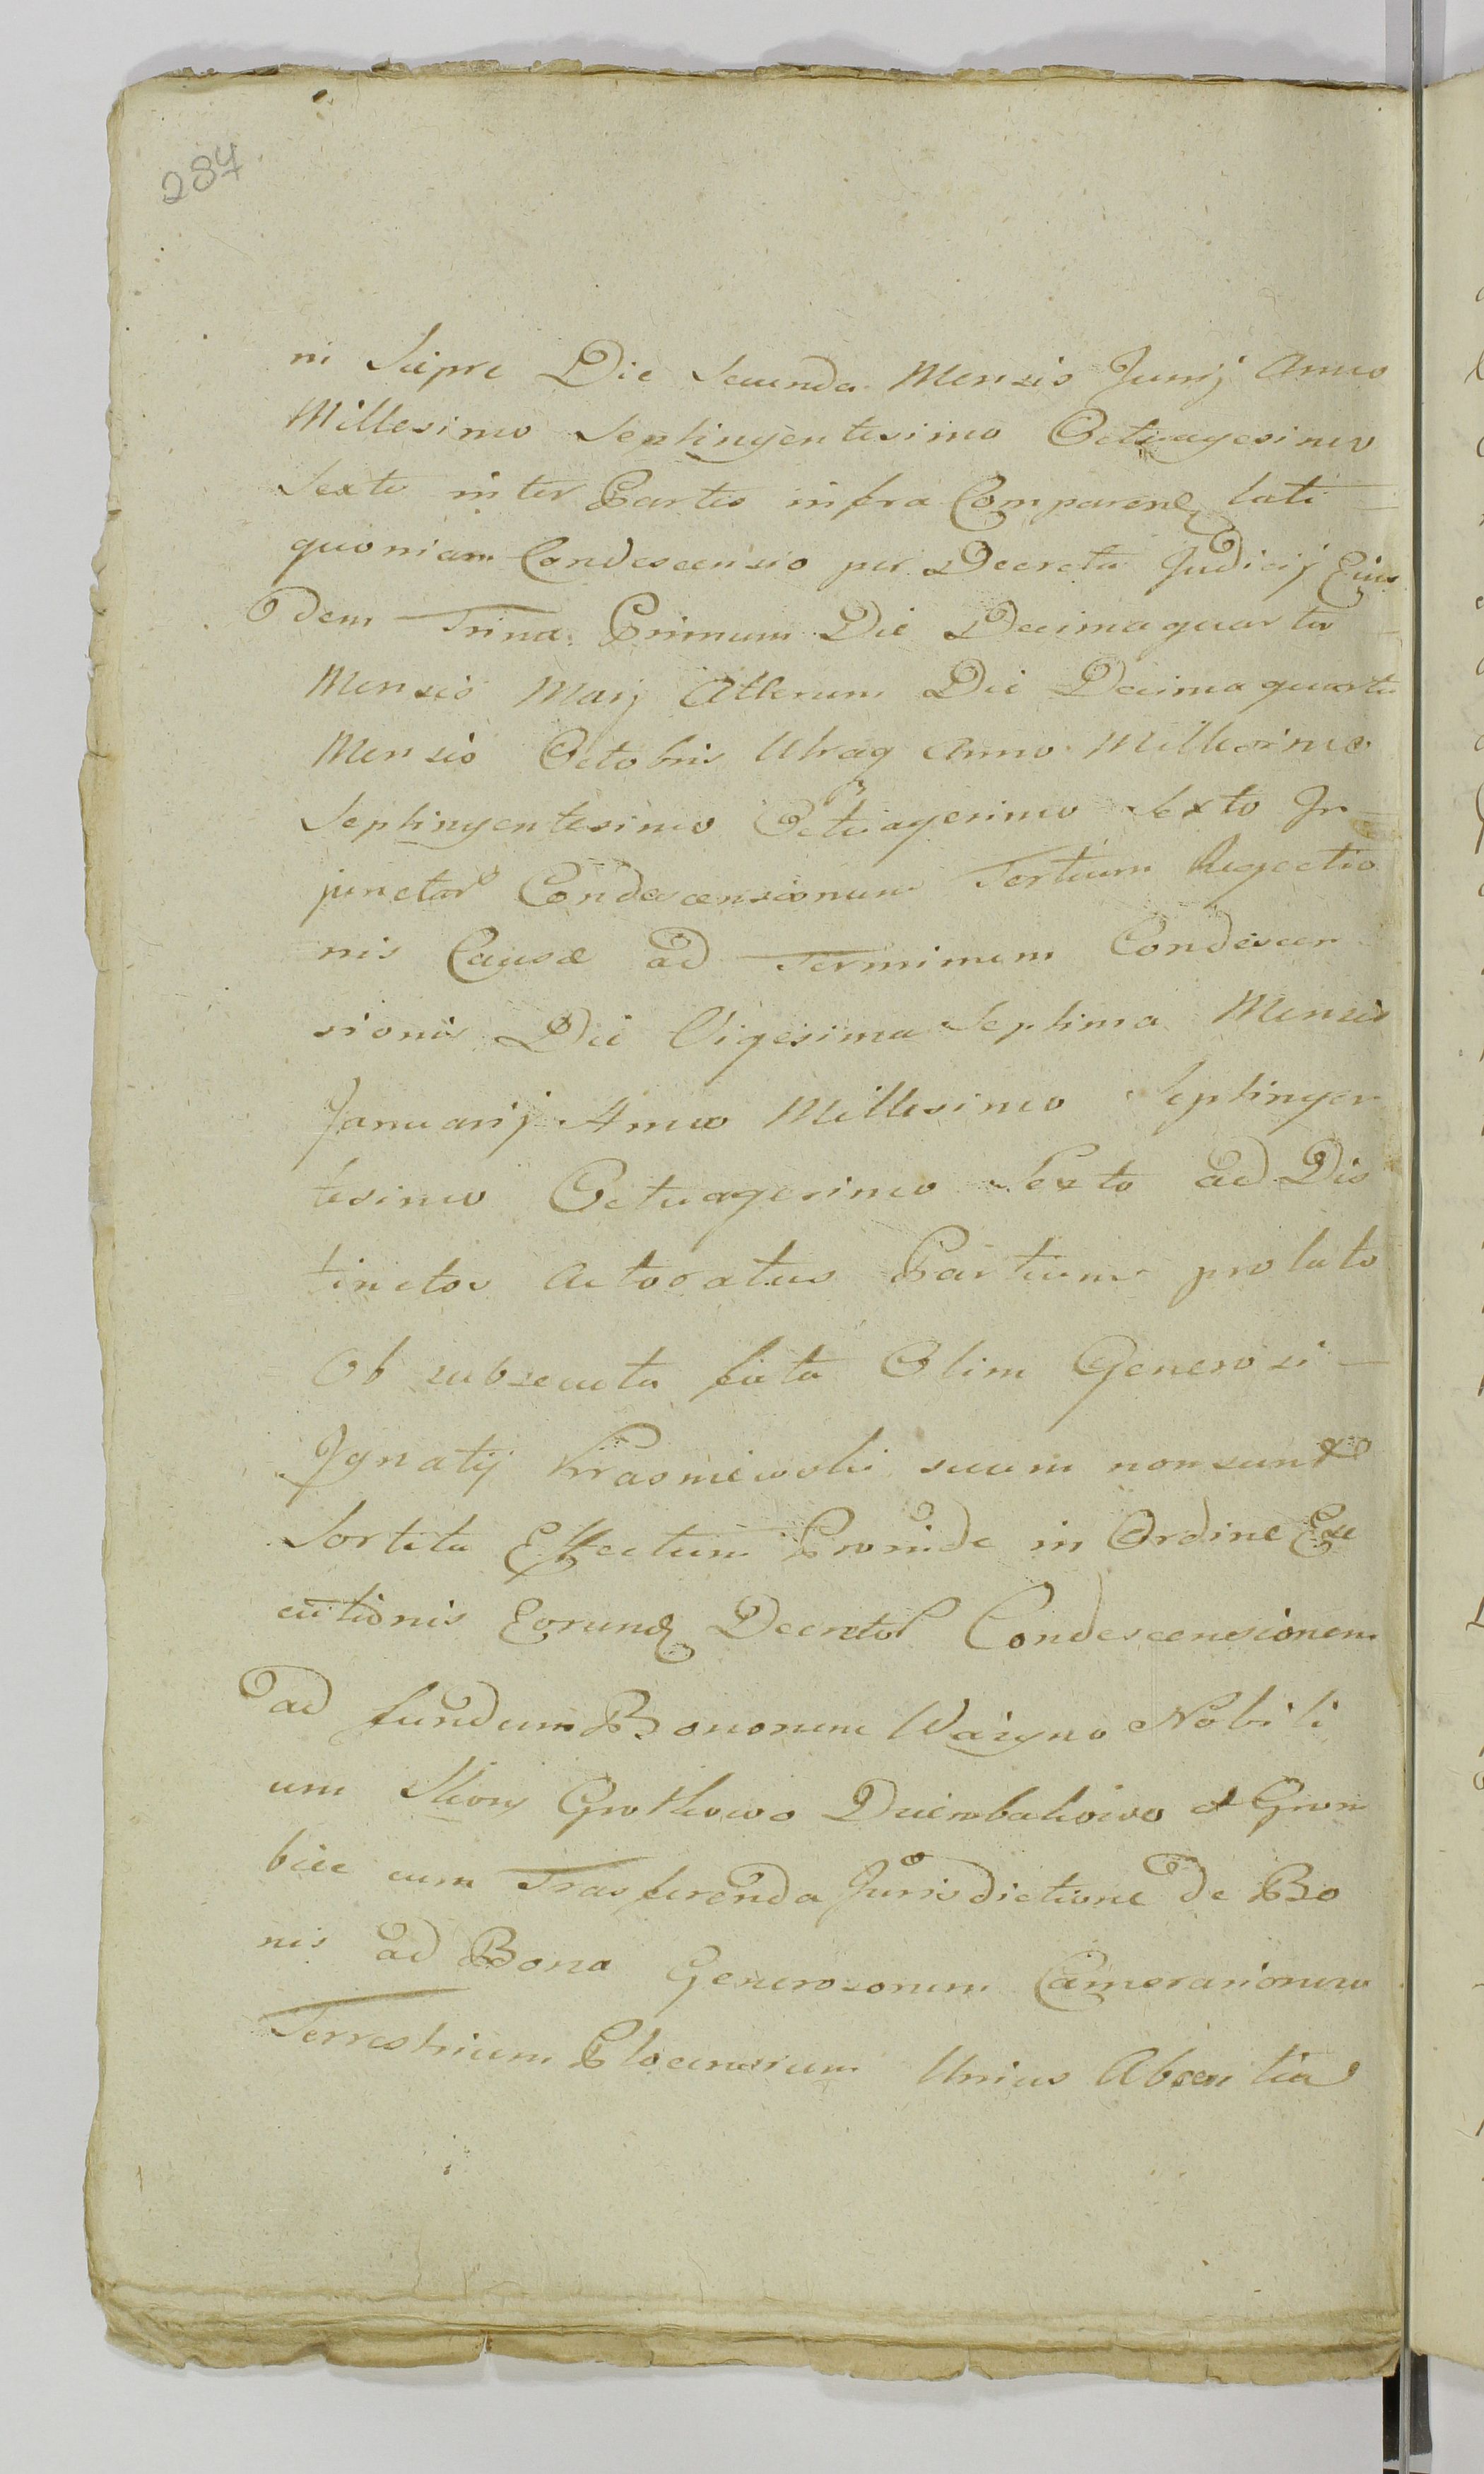 284
ni Sierpc Die Secunda Mensis Junij Anno
Millesimo Septingentesimo Octuagesimo
Sexto inter Partes infra Comparend lati
quoniam Condescensio per Decreta Judicij Eius
dem Trina Primum Die Decimaquarta
Mensis Maij Alterum Die Decima quarta
Mensis Octobris Utraq Anno Millesimo
Septingentesimo Octuagesimo Sexto In
junctar Condescensionum Tertium Rejectio
nis Causae ad Terminum Condescen
sionis Die Vigesima Septima Mensis
Januarij Anno Millesimo Septingen
tesimo Octuagesimo Sexto ad Dis
tinctos Actoratus Partium prolato
Ob subsecuta fata Olim Generosi
Ignatij Krasniewski suum non sunt
Sortita Effectum Proinde in Ordine Exe
cutionis Eorund Decretor Condescensionem
ad fundum Bonorum Nobili
um Grotkowo Dziembakowo et Grom
bice cum Trasferenda Jurisdictione de Bo
nis ad Bona Generosorum Camerariorum
Terrestrium Plocensium Unius Absentia